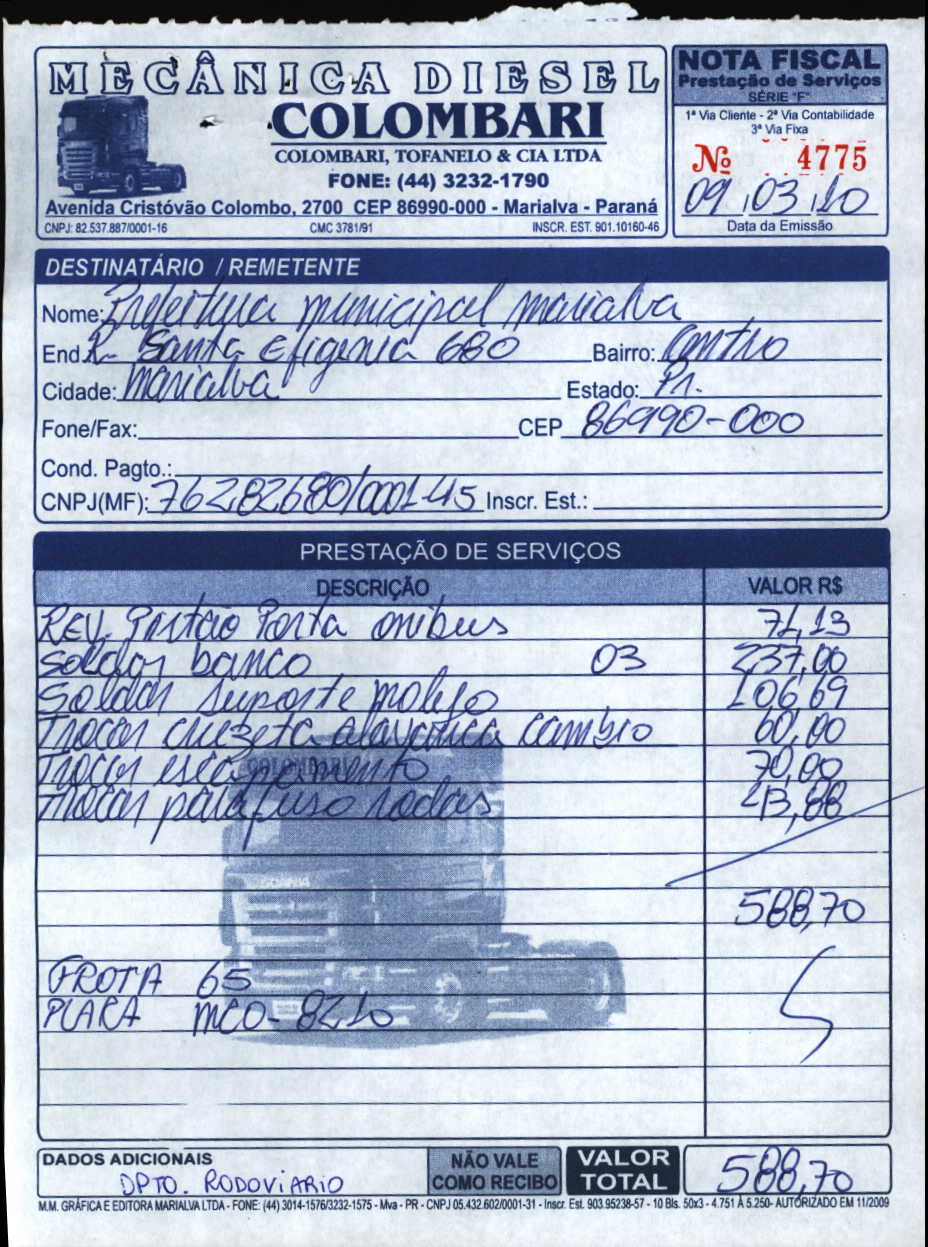 MECÂNICA DIESEL
COLOMBARI
COLOMBARI, TOFANELO & CIA LTDA
FONE: (44) 3232-1790
Avenida Cristóvão Colombo, 2700 CEP 86990-000 - Marialva - Paraná
CNPJ: 82.537.887/0001-16 CMC 3781/91 INSCR. EST. 901.10160-46
NOTA FISCAL
Prestação de Serviços
SÉRIE "F"
1ª Via Cliente - 2ª Via Contabilidade
3ª Via Fixa
Nº 4775
09 03 10
Data da Emissão
DESTINATÁRIO / REMETENTE
Nome: Prefeitura municipal marialva
End. R. Santa Efigenia 680 Bairro: Centro
Cidade: Marialva Estado: Pr.
Fone/Fax: CEP 86990-000
Cond. Pagto.:
CNPJ(MF): 76282680/0001-45 Inscr. Est.:
PRESTAÇÃO DE SERVIÇOS
DESCRIÇÃO VALOR R$
REV. Pistão Porta onibus 71,13
Soldar banco 03 237,00
Soldar suporte molejo 106,69
Trocar cruzeta alavanca cambio 60,00
Trocar escapamento 70,00
Trocar parafuso rodas 43,88
588,70
FROTA 65
PLACA MCO-8210
DADOS ADICIONAIS
DPTO. RODOVIARIO
NÃO VALE
COMO RECIBO
VALOR
TOTAL
588,70
M.M. GRÁFICA E EDITORA MARIALVA LTDA - FONE: (44) 3014-1576/3232-1575 - Mva - PR - CNPJ 05.432.602/0001-31 - Inscr. Est. 903.95238-57 - 10 Bls. 50x3 - 4.751 À 5.250- AUTORIZADO EM 11/2009